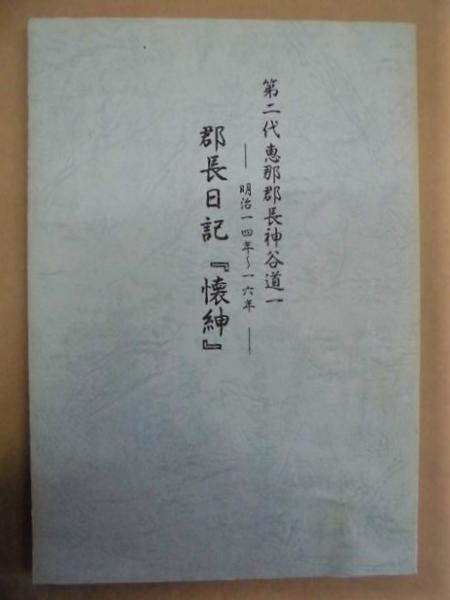 第二代恵那郡長神谷道一
― 明治一四年~一六年 ―
郡長日記『懐紳』